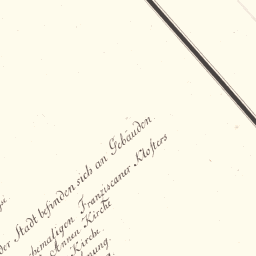 der Stadt befinden sich an Gebäuden
ehemaligen Franziscaner Klosters
Annen Kirche
Kirche